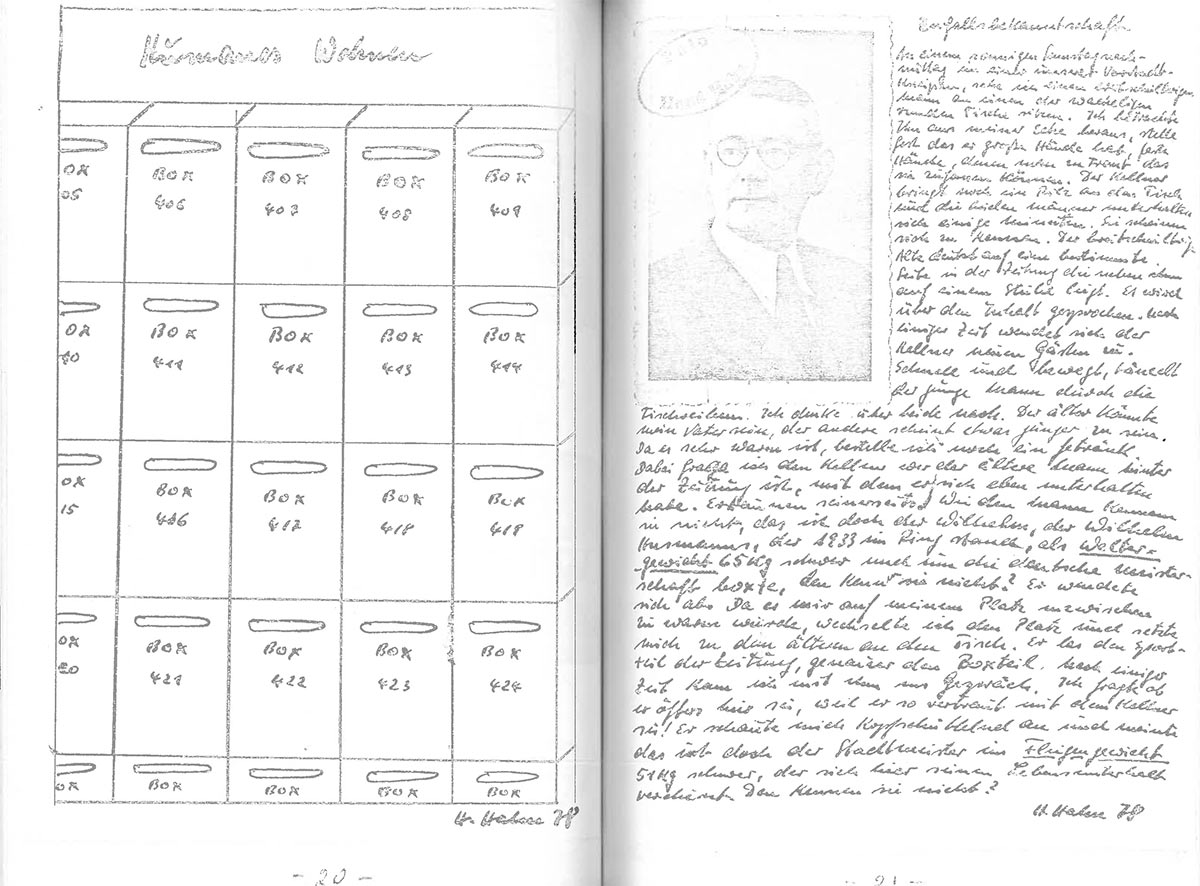 Humanes Wohnen
BOX BOX BOX BOX
05 406 407 408 409
BOX BOX BOX BOX
10 411 412 413 414
BOX BOX BOX BOX
15 416 417 418 419
BOX BOX BOX BOX
20 421 422 423 424
BOX BOX BOX BOX
H. Hahn 78
- 20 -
Zufallsbekanntschaft
An einem sonnigen Samstagnach-
mittag in einer unserer Vorstadt-
kneipen, sehe ich einen breitschultrigen
Mann an einen der wackeligen
runden Tische sitzen. Ich betrachte
ihn aus meiner Ecke heraus, stelle
fest das er große Hände hat, feste
Hände, denen man zutraut das
sie zufassen können. Der Kellner
bringt noch ein Pils an den Tisch
und die beiden Männer unterhalten
sich einige Minuten. Sie scheinen
sich zu kennen. Der breitschultrige
Alte deutet auf eine bestimmte
Seite in der Zeitung die neben ihm
auf einem Stuhle liegt. Es wird
über den Inhalt gesprochen. Nach
einiger Zeit wendet sich der
Kellner neuen Gästen zu.
Schnell und bewegt, tänzelt
der junge Mann durch die
Tischreihen. Ich denke über beide nach. Der ältere könnte
mein Vater sein, der andere scheint etwas jünger zu sein.
Da es sehr warm ist, bestelle ich noch ein Getränk.
Dabei frage ich den Kellner wer der ältere Mann hinter
der Zeitung ist, mit dem er sich eben unterhalten
habe. Erstaunen seinerseits! Wie den Mann kennen
sie nicht, das ist doch der Wilhelm, der Wilhelm
Husmanns, der 1933 im Ring stand, als Welter-
gewicht 65 Kg schwer und um die deutsche Meister-
schaft boxte, den kennt sie nicht? Er wendete
sich ab. Da es mir auf meinem Platz inzwischen
zu warm wurde, wechselte ich den Platz und setzte
mich zu dem ältern an den Tisch. Er las den Sport-
teil der Zeitung, genauer den Boxteil. Nach einiger
Zeit kam ich mit ihm ins Gespräch. Ich fragte ob
er öfters hier sei, weil er so vertraut mit dem Kellner
sei! Er schaute mich kopfschüttelnd an und meinte
das ist doch der Stadtmeister im Fliegengewicht
51 Kg schwer, der sich hier seinen Lebensunterhalt
verdient. Den kennen sie nicht?
H. Hahn 78
- 21 -